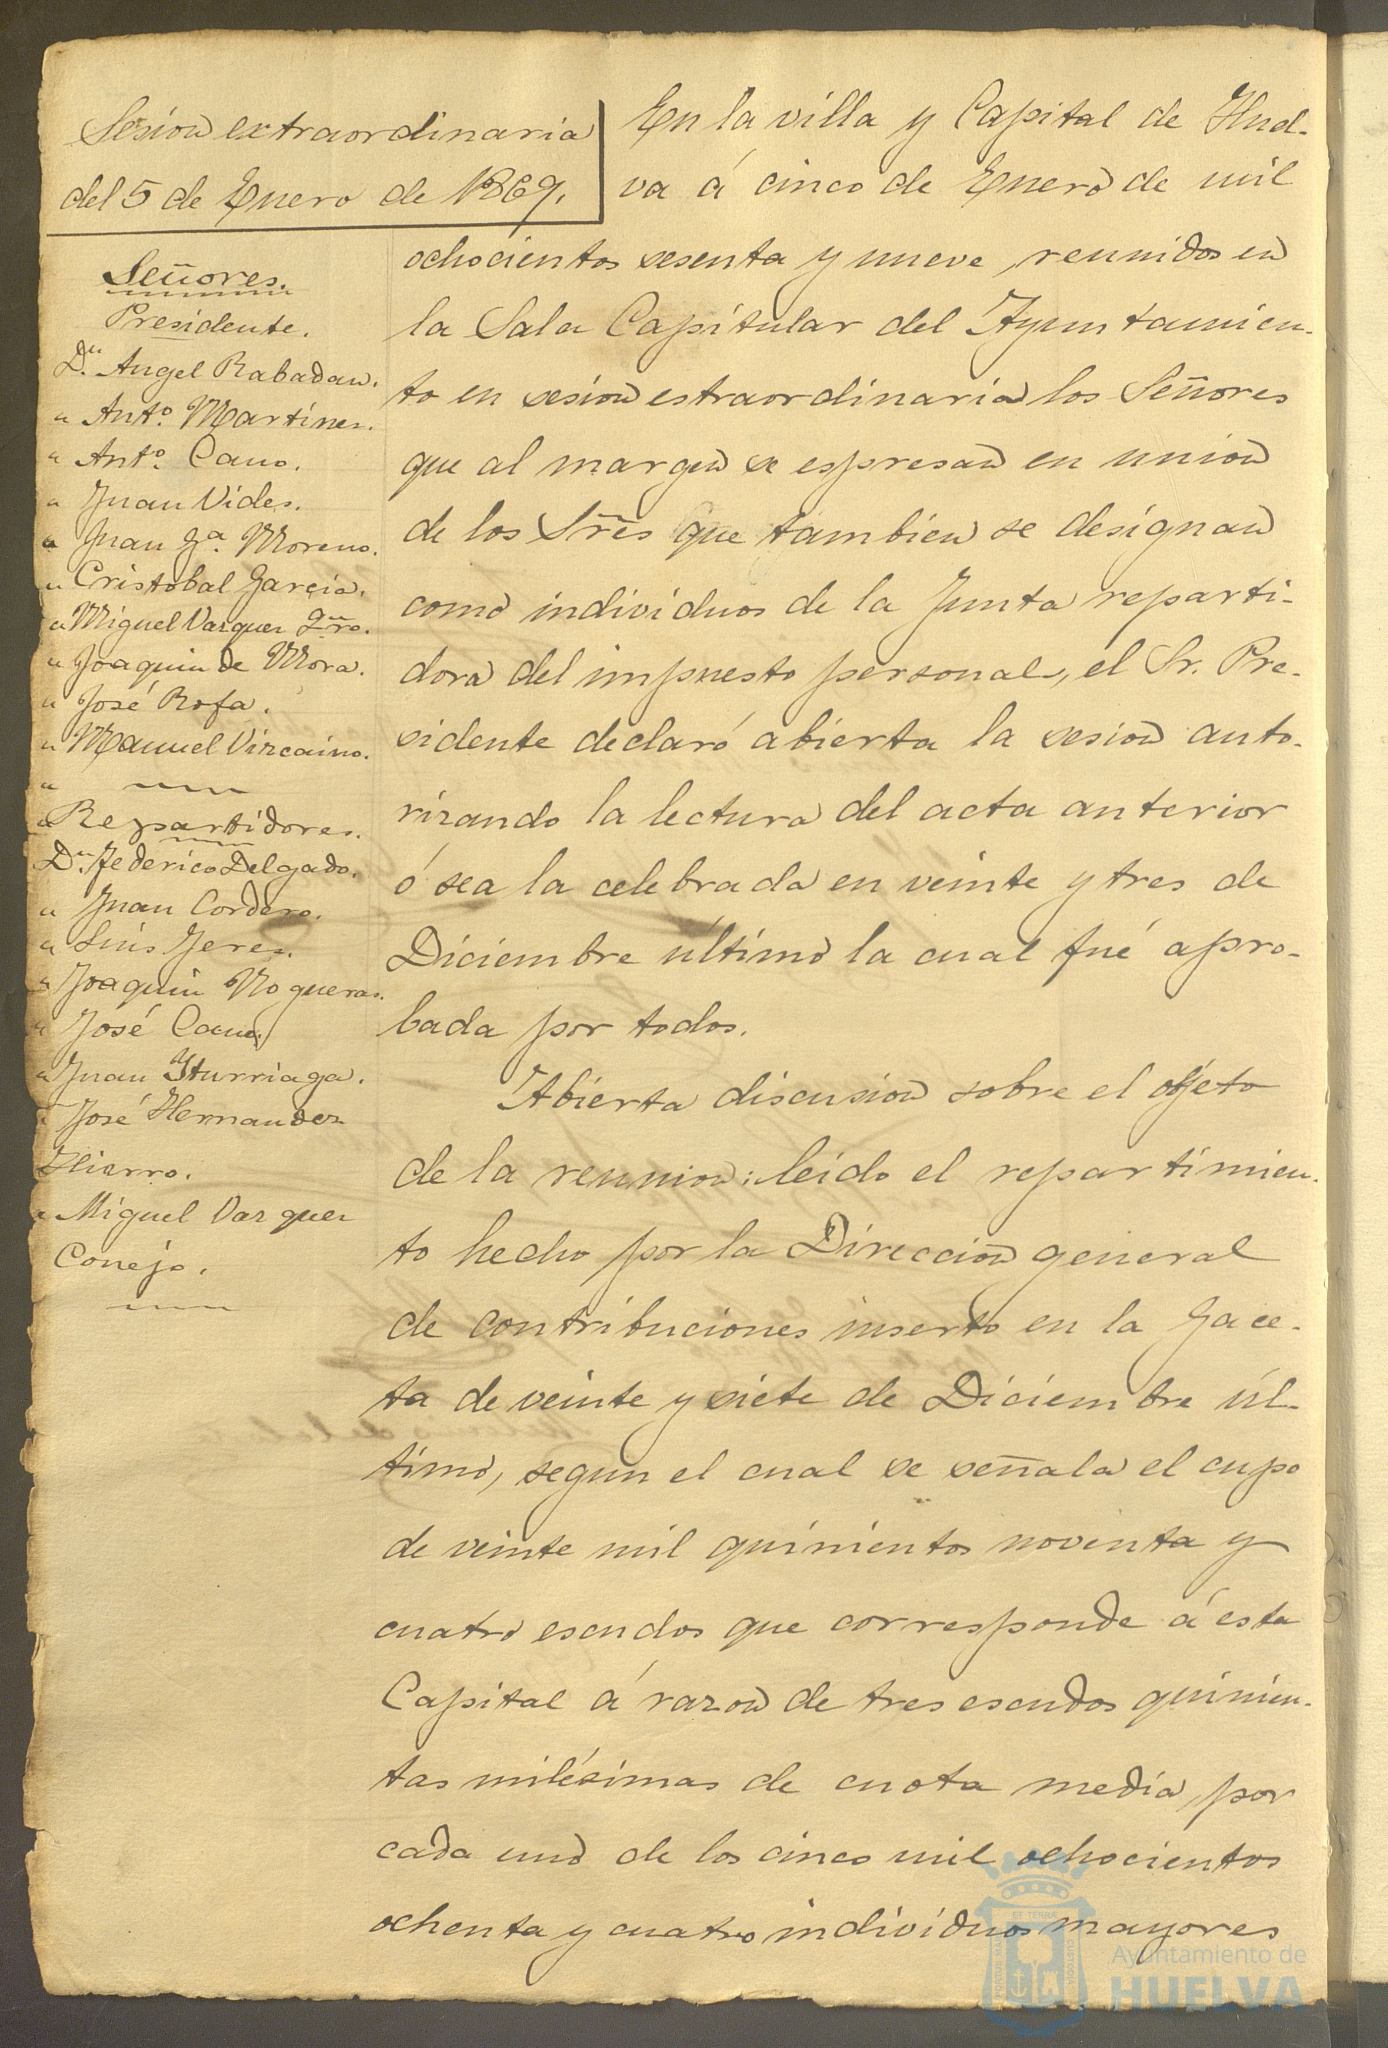 Sesion extraordinaria
del 5 de Enero de 1869.
Señores.
Presidente.
Dn. Angel Rabadan.
" Anto. Martinez.
" Anto. Cano.
" Juan Vides.
" Juan Ga. Moreno.
" Cristobal Garcia.
" Miguel Vazquez
" Joaquin de Mora.
" José Rofa.
" Manuel Vizcaino.
"
Repartidores.
Dn. Federico Delgado.
" Juan Cordero.
" Luis Jerez.
" Joaquin Nogueras.
" José Cano.
" Juan Yturriaga.
" José Hernandez
Hierro.
" Miguel Vazquez
Conejo.
En la villa y Capital de Huel-
va á cinco de Enero de mil
ochocientos sesenta y nueve, reunidos en
la Sala Capitular del Ayuntamien-
to en sesion estraordinaria los Señores
que al margen se espresan en union
de los Sres que tambien se designan
como individuos de la Junta reparti-
dora del impuesto personal, el Sr. Pre-
sidente declaró abierta la sesion auto-
rizando la lectura del acta anterior
ó sea la celebrada en veinte y tres de
Diciembre último la cual fué apro-
bada por todos.
Abierta discusion sobre el objeto
de la reunion: leido el repartimien-
to hecho por la Direccion general
de contribuciones inserto en la Gace-
ta de veinte y siete de Diciembre úl-
timo, segun el cual se señala el cupo
de veinte mil quinientos noventa y
cuatro escudos que corresponde á esta
Capital á razon de tres escudos quinien-
tas milésimas de cuota media, por
cada uno de los cinco mil ochocientos
ochenta y cuatro individuos mayores
Ayuntamiento de
HUELVA